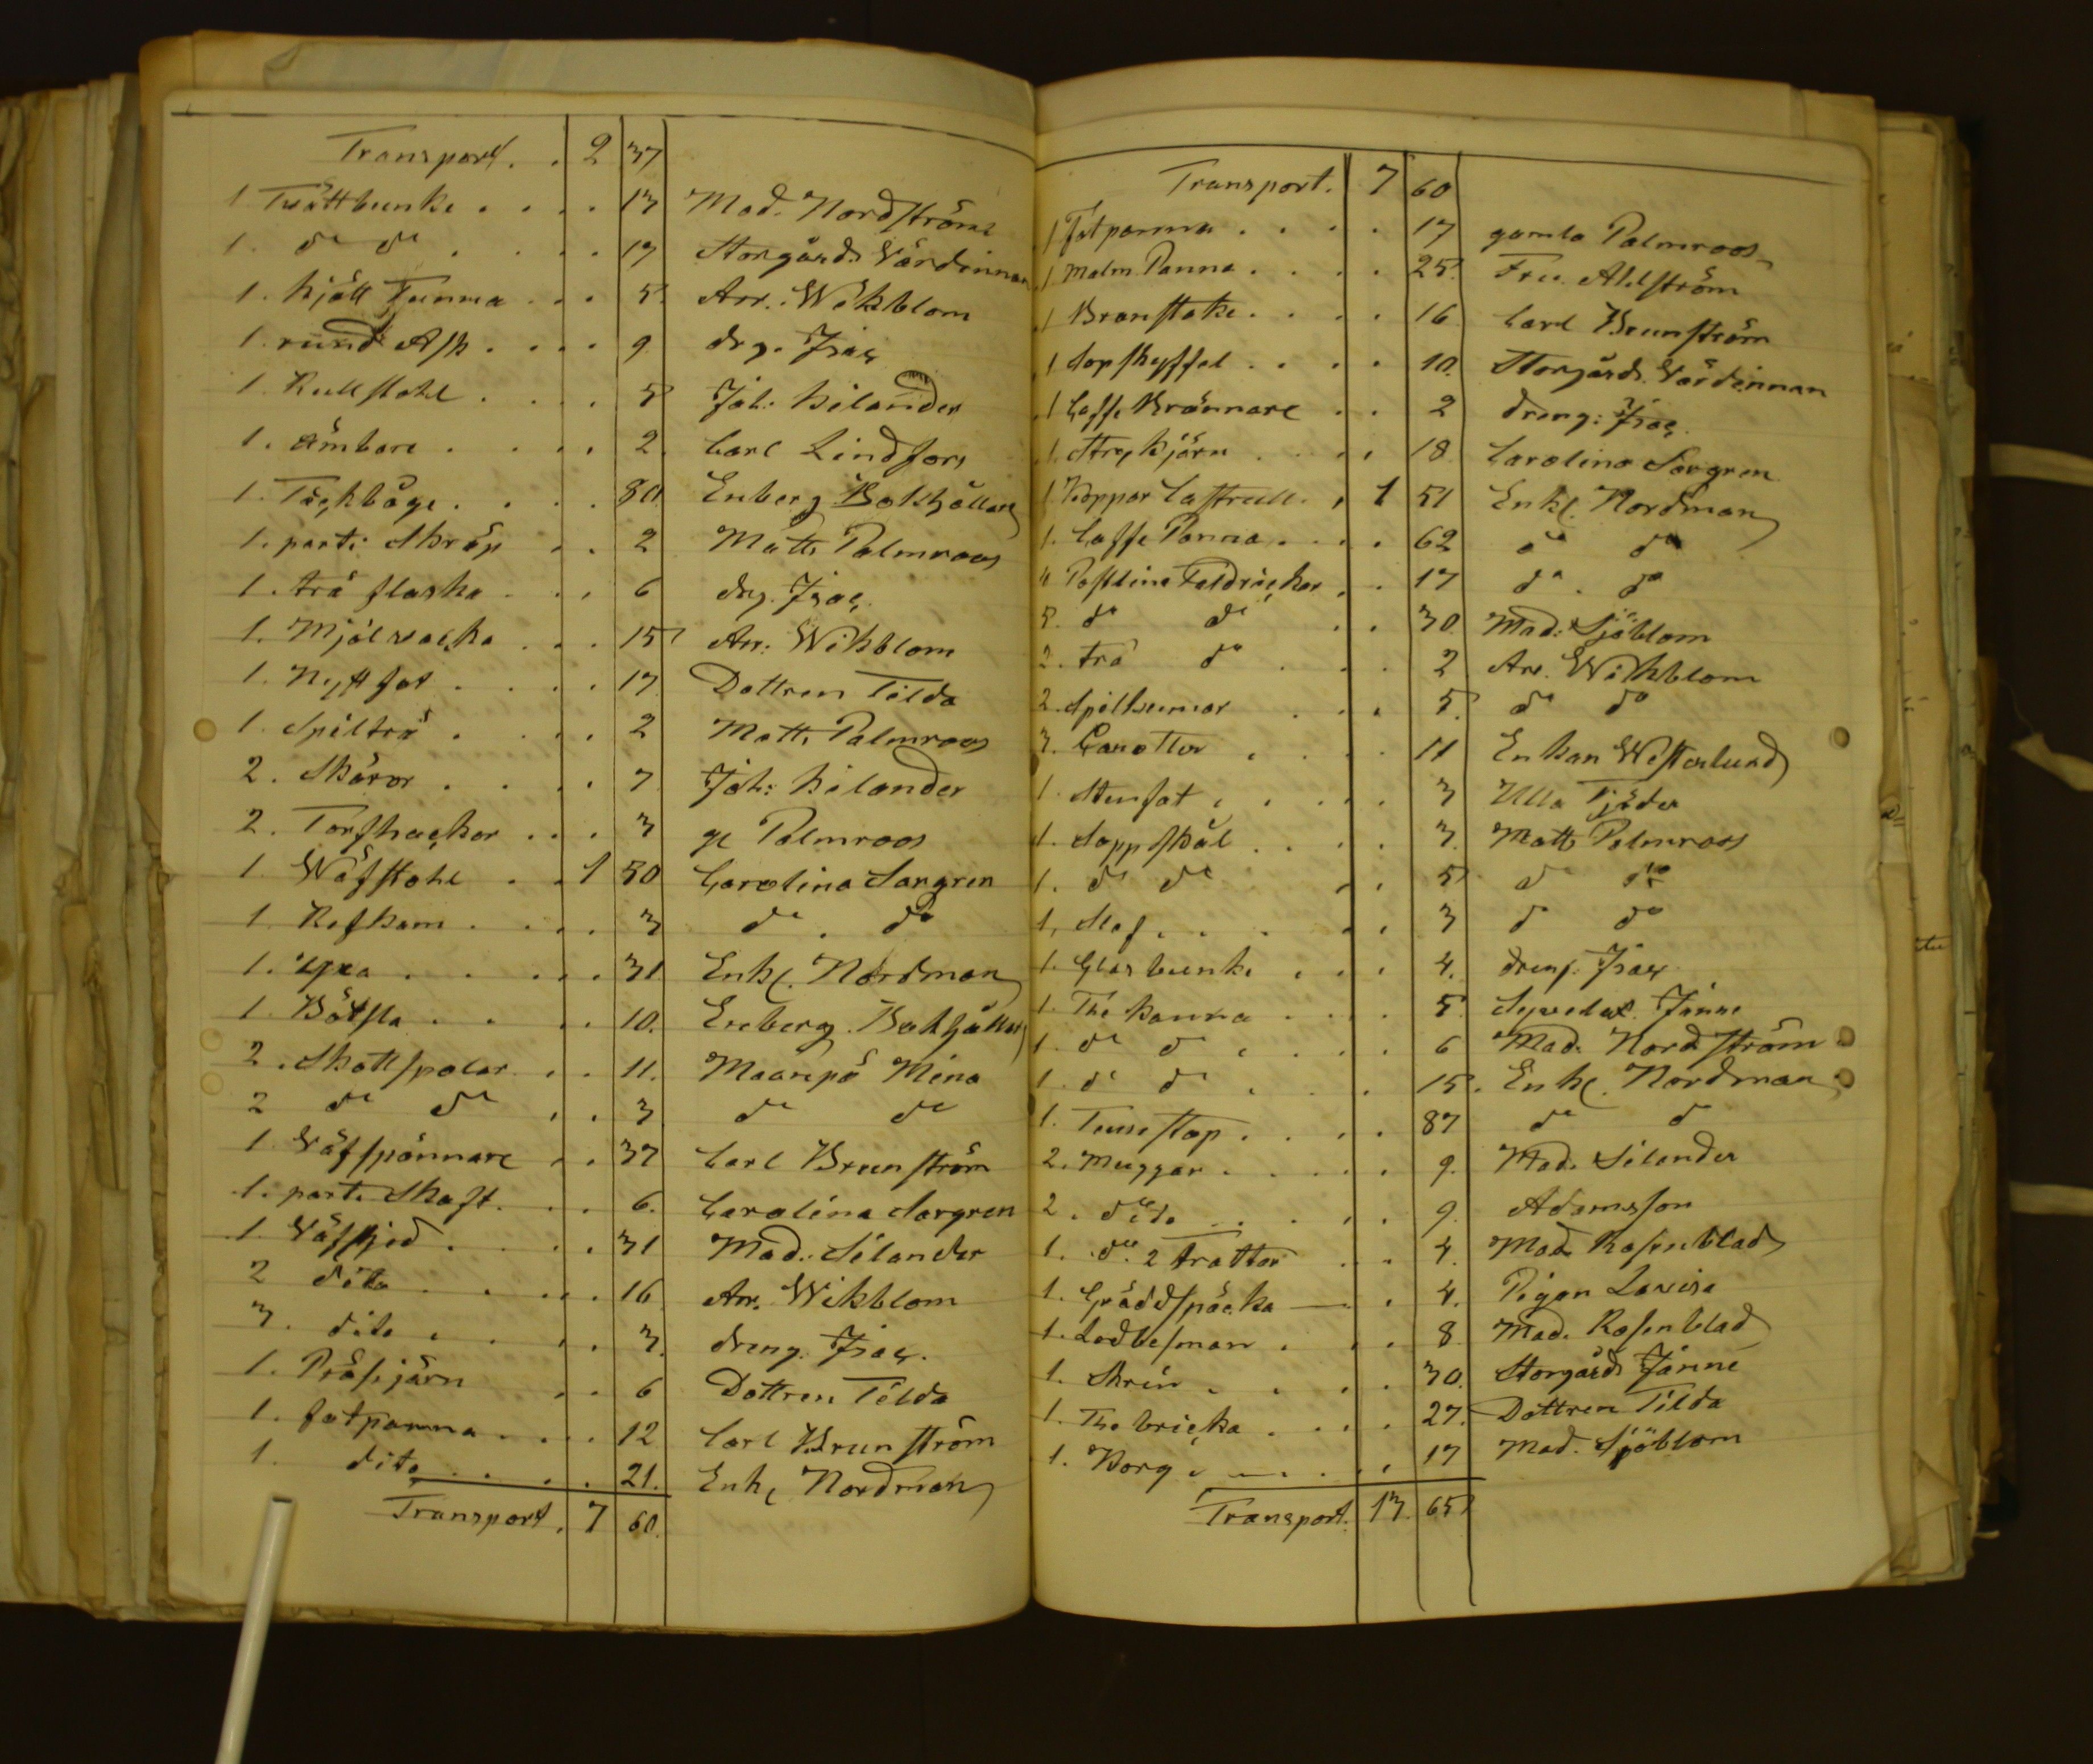 Transport. . 2 37
1 Tvättbunke . . . . 13 Mad. Nordström
1. do do . . . . 17 Storgårds Värdinnan
1. Kjöll Tunna . . . 5. Arr. Wikblom
1. rund Ask . . . . 9. drg. Isac
1. Rullstohl . . . . 5 Joh: Kilander
1. ämbare . . . . 2. Carl Lindfors
1. Täckbåge. . . . . 80. Enberg Bokhållare
1. parti Skräp . . 2 Matts Palmroos
1. trä flaska . . . 6 drg. Isac
1. Mjölvacka . . . 15 Arr: Wikblom
1. Nytt fat . . . . 17. Dottren Tilda
1. Spilträ . . . . 2 Matts Palmroos
2. Skäror . . . . 7 Joh: Kilander
2. Torfhackor . . . 3 gl Palmroos
1 Wäfstohl . . 1 50 Carolina Sargren
1. Refkam . . . . 3 do . do
1. Yxa . . . . . 31 Enkl. Nordman
1. Bötsla . . . . 10. Enberg. Bokhållare
2. Skottspolar . . 11. Mina
2 do do . . 3 do do
1. Väfspännare . . 37 Carl Brunström
1. parti Skaft. . . 6. Carolina Sargren
1. Väfskjed . . . . 31 Mad. Silander
2 dito . . . . 16. Arr. Wikblom
3. dito . . . . 3. dreng. Isac.
1. Präsijärn . . 6 Dottren Tilda
1. fatpanna . . . . 12 Carl Brunström
1. dito . . . . 21. Enkl Nordman
Transport. 7 60.
Transport. 7 60
1 fatpanna . . . . 17 gamla Palmroos
1. Malm Panna . . . . 25. Fru. Ahlström
1 Branstake . . . . 16 Carl Brunström
1 Sopskyffel . . . . 10. Storgårds. Värdinnan
1 Caffe Brännare . . 2 dreng: Isac.
1. Strykjärn . . . . 18. Carolina Sargren
1 Koppar Castrull . , 1 51 Enkl. Nordman
1. Caffe Panna . . . . 62 do do
4 Postlins Taldrickor . . 17 do . do
5. do do . . 30. Mad: Sjöblom
2. trä do . . . 2 Arr. Wikblom
2. Spilkumar . . . 5. do do
3. Carotter . . . . 11 Enkan Westerlund
1. Stenfat . . . . . 3 Ulla Tjäder
1. Soppskål . . . . 3. Matts Palmroos
1. do do . . 5 do do
1. Slef . . . . . 3 do do
1. Glas bunke . . . 4. dreng. Isac
1. Thé kanna . . . . 5. Janne
1. do do . . . . 6 Mad. Nordström
1. do do . . . 15. Enkl. Nordman
1. Tennstop . . . . 87 do do
2. Muggar . . . . . 9. Mad. Silander
2. dito . . . . . 9. Adamsson
1. do. 2 trattar . . 4. Mad. Rosenblad
1. Gräddsnäcka . 4. Pigan Lovisa
1. Lodbesman . . . 8. Mad. Rosenblad
1. Skrin . . . . . 30. Storgårds Janne
1. The bricka . . . . 27. Dottren Tilda
1. Korg . . . . . 17 Mad. Sjöblom
Transport. 13. 65